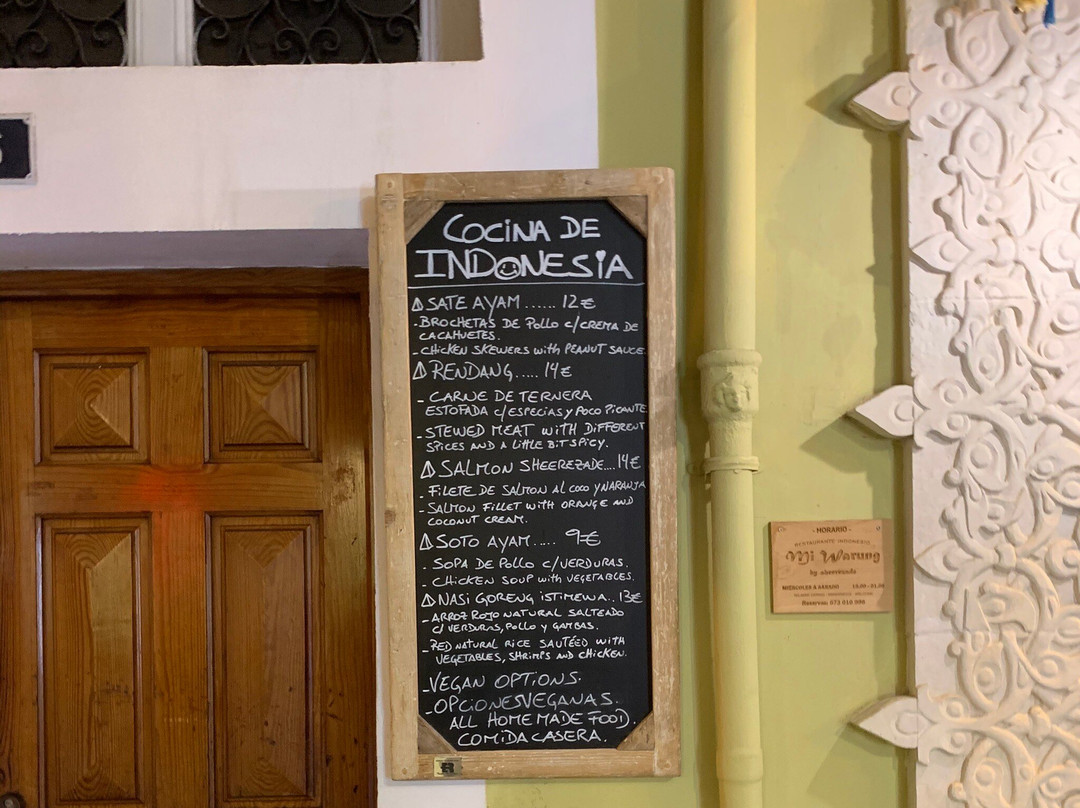 COCINA DE
INDONESIA
SATE AYAM ...... 12€
- BROCHETAS DE POLLO C/CREMA DE
CACAHUETES.
- CHICKEN SKEWERS with PEANUT SAUCE.
RENDANG ..... 14€
- CARNE DE TERNERA
ESTOFADA C/ESPECIAS y POCO PICANTE
- STEWED MEAT WITH DIFFERENT
SPICES AND A LITTLE BIT SPICY.
SALMON SHEEREZADE.... 14€
- FILETE DE SALMON AL COCO Y NARANJA
- SALMON FILLET WITH ORANGE AND
COCONUT CREAM.
SOTO AYAM ..... 9€
- SOPA DE POLLO C/VERDURAS.
- CHICKEN SOUP WITH VEGETABLES.
NASI GORENG ISTIMEWA.. 13€
- ARROZ ROJO NATURAL SALTEADO
C/VERDURAS, POLLO Y GAMBAS.
- RED NATURAL RICE SAUTÉED WITH
VEGETABLES, SHRIMPS AND CHICKEN.
- VEGAN OPTIONS.
- OPCIONES VEGANAS.
ALL HOME MADE FOOD.
COMIDA CASERA.
- HORARIO -
RESTAURANTE INDONESIO
Mi Warung
MIÉRCOLES A SÁBADO
Reservas